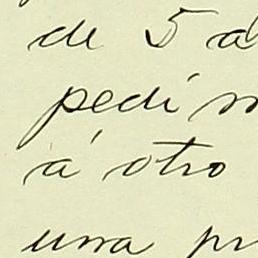 de 5 a
pedí
á otro
una pr